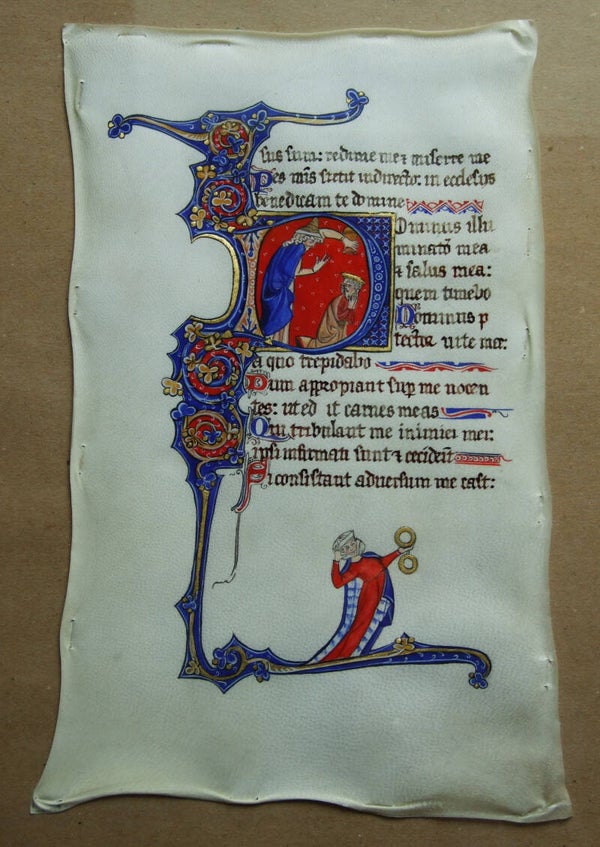 sus sum: redime me ⁊ miserre me
Pes mis stetit in directo: in ecclesiis
benedicam te domine
Dominus illu
minatō mea
⁊ salus mea:
quem timebo
Dominus p
tector uite mee:
a quo trepidabo
Dum appropiant sup me nocen
tes: ut ed it carnes meas
Qui tribulant me inimici mei:
ipsi infirmati sunt ⁊ ceciderūt
Si consistant adversum me cast: